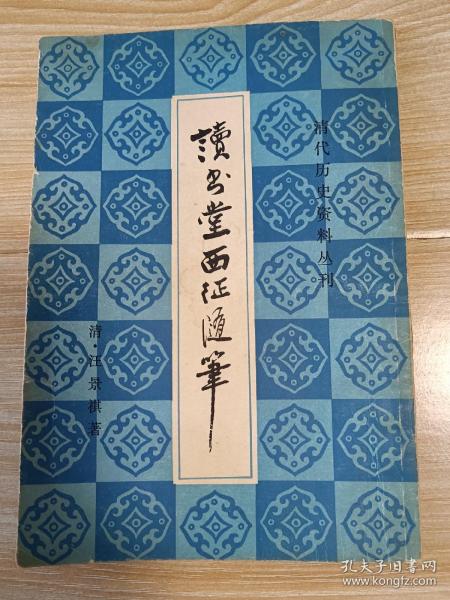 清代历史资料丛刊
讀书堂西征随筆
清·汪景祺著
孔夫子旧书网
www.kongfz.com